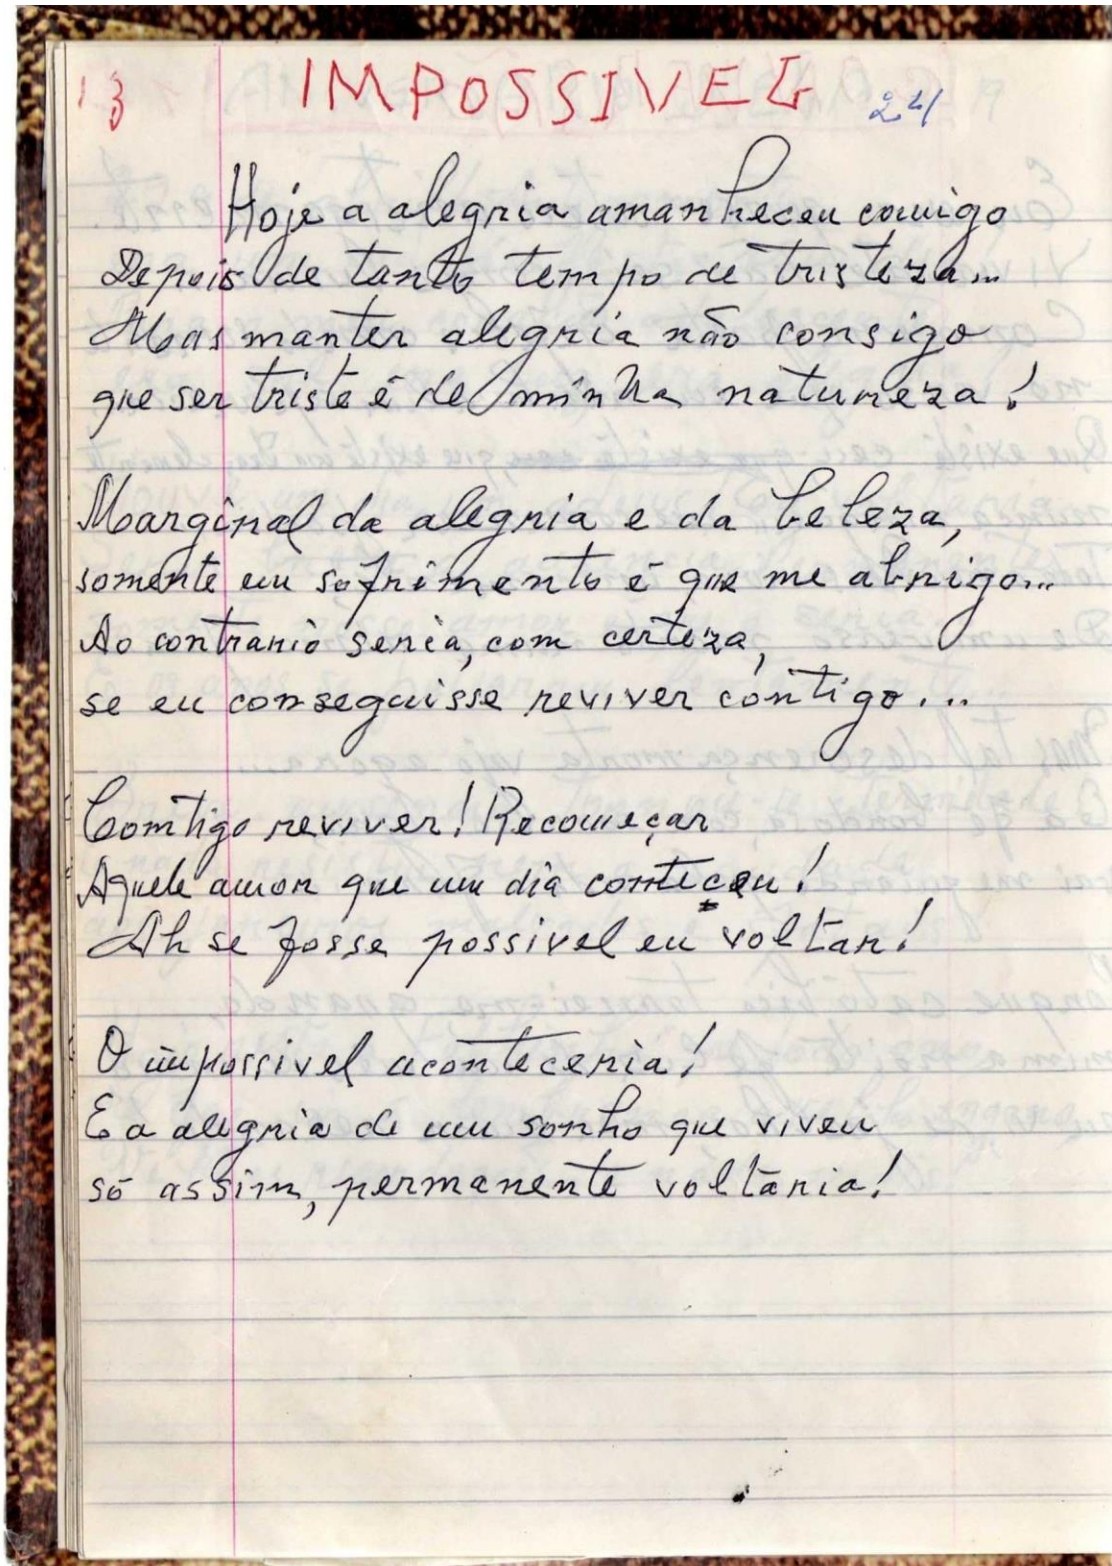 13 IMPOSSIVEL 24
Hoje a alegria amanheceu comigo
Depois de tanto tempo de tristeza...
Mas manter alegria não consigo
que ser triste é de minha natureza!
Marginal da alegria e da beleza,
somente em sofrimento é que me abrigo...
Ao contrario seria, com certeza,
se eu conseguisse reviver contigo...
Comtigo reviver! Recomeçar
Aquele amor que um dia
Ah se fosse possivel eu voltar!
O impossivel aconteceria!
E a alegria de um sonho que viveu
só assim, permanente voltaria!